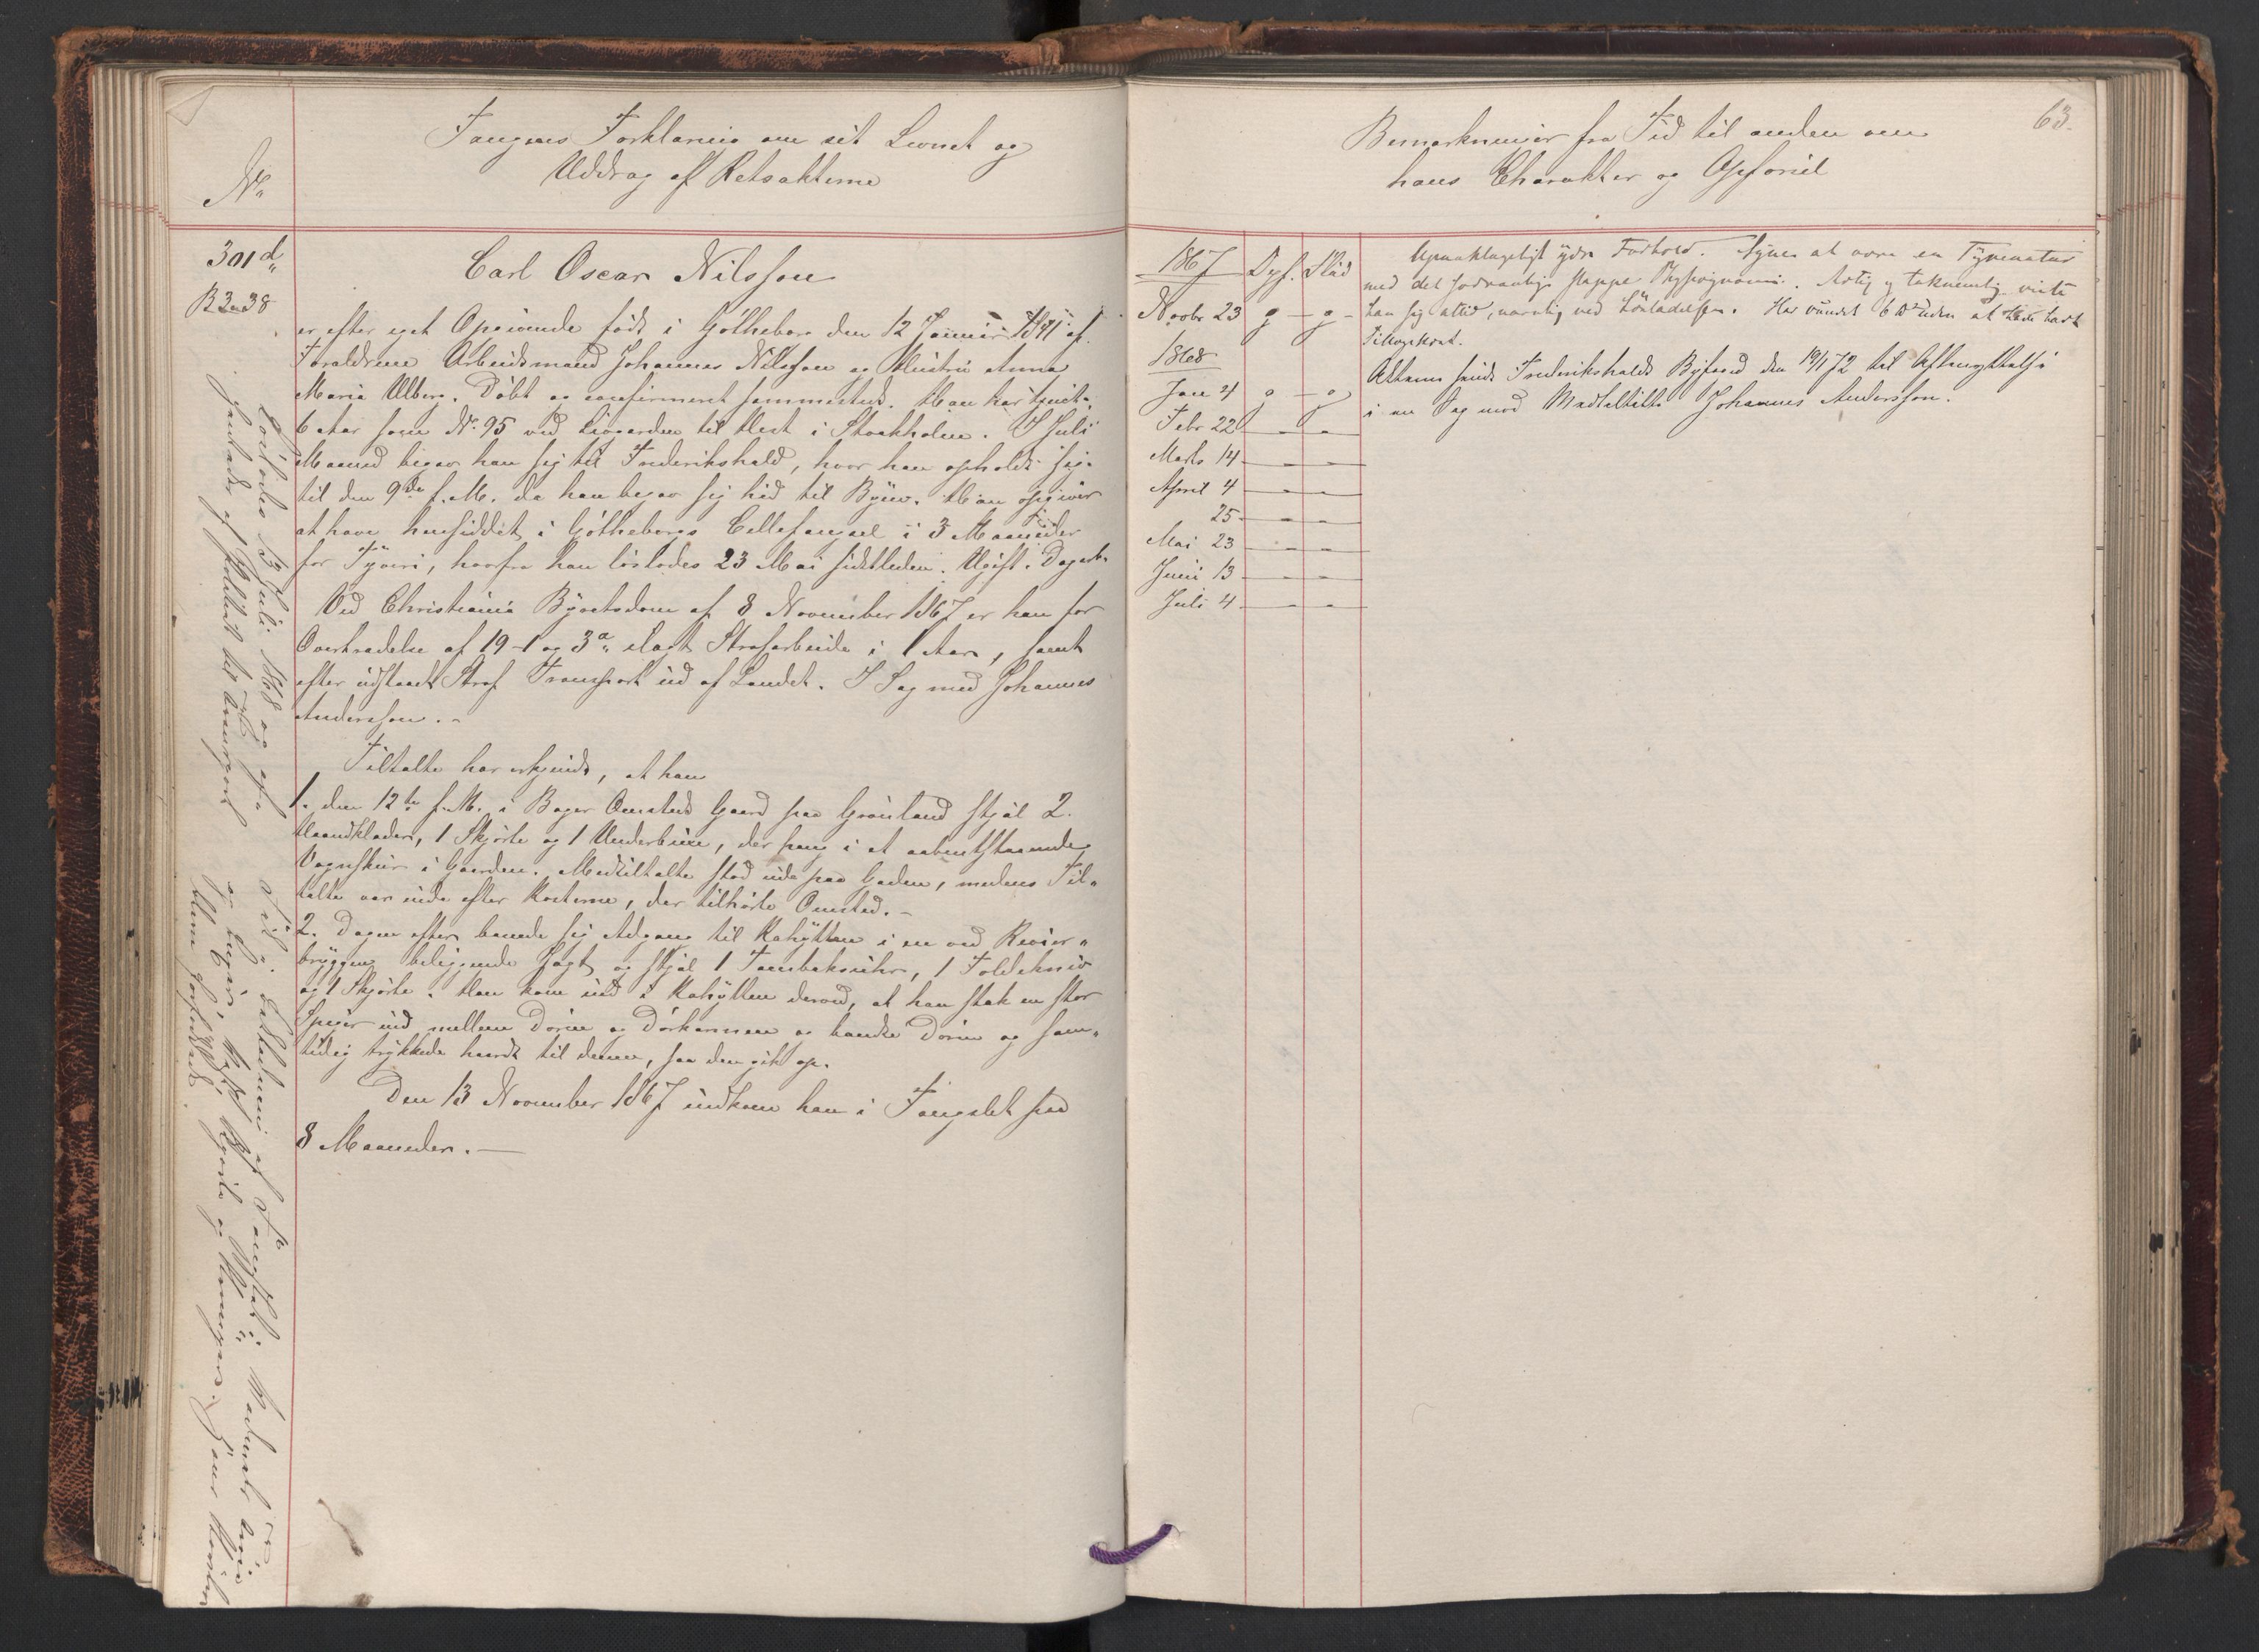 Fangens Forklaring om sit Levnet og
Uddrag af Retsakterne
No
301 d.
B 3-38
Carl Oscar Nilsson
er efter eget Opgivende født i Gøtheborg den 12 Januar 1841 af
Forældrene Arbeidsmand Johannes Nilsson og Hustru Anna
Maria Ulberg. Døbt og confirmeret sammesteds. Han har tjent
6 Aar som No. 95 ved Livgarden til Hest i Stockholm. I Juli
Maaned begav han sig til Frederikshald, hvor han opholdt sig
til den 9de f.M. da han begav sig hid til Byen. Han opgiver
at have hensiddet i Gøtheborgs Cellefængsel i 3 Maaneder
for Tyveri, hvorfra han løslodes 23 Mai sidstleden. Ugift. Dagarb.
Ved Christiania Byretsdom af 8 November 1867 er han for
Overtrædelse af 19-1 og 3 a. ilagt Strafarbeide i 1 Aar, samt
efter udstaaet Straf Transport ud af Landet. I Sag med Johannes
Andersson.
Tiltalte har erkjendt, at han
1. den 12te f.M. i Bager Omsteds Gaard paa Grønland stjal 2
Haandklæder, 1 Skjorte og 1 Underbuxe, der hang i et aabentstaaende
Vognskur i Gaarden. Medtiltalte stod ude paa Gaden, medens Til-
talte var inde efter Kosterne, der tilhørte Omsted.
2. Dagen efter banede sig Adgang til Kahytten i en ved Revier-
bryggen beliggende Jagt og stjal 1 Tombaksuhr, 1 Foldekniv
og 1 Skjorte. Han kom ind i Kahytten derved, at han stak en stor
Spiger ind mellem Døren og Dørkarmen og samt-
tidig trykkede haardt til denne, saa den gik op.
Den 13 November 1867 indkom han i Fængslet paa
8 Maaneder.
Løslodes 13 Juli 1868 og af-
hentedes af Politiet til Transport
63.
Bemærkninger fra Tid til anden om
hans Charakter og Opførsel
1867 Opf. Flid
Novbr 23 g - g -
1868
Jan 4 g - g
Febr 22 - -
Marts 14 - -
April 4 - -
25 - -
Mai 23 - -
Juni 13 - -
Juli 4 - -
Upaaklageligt ydre Forhold. Synes at være en Tyvenatur
med det sædvanlige slappe Physiognomi. Artig og taknemlig viste
han sig altid, navnlig ved Løsladelsen. Har vundet 6 uden at have havt
Tilbagekast.
Akterne sendt Frederikshalds Byfoged den 19/1 72 til Afbenyttelse
i en Sag mod Medtiltalte Johannes Andersson.